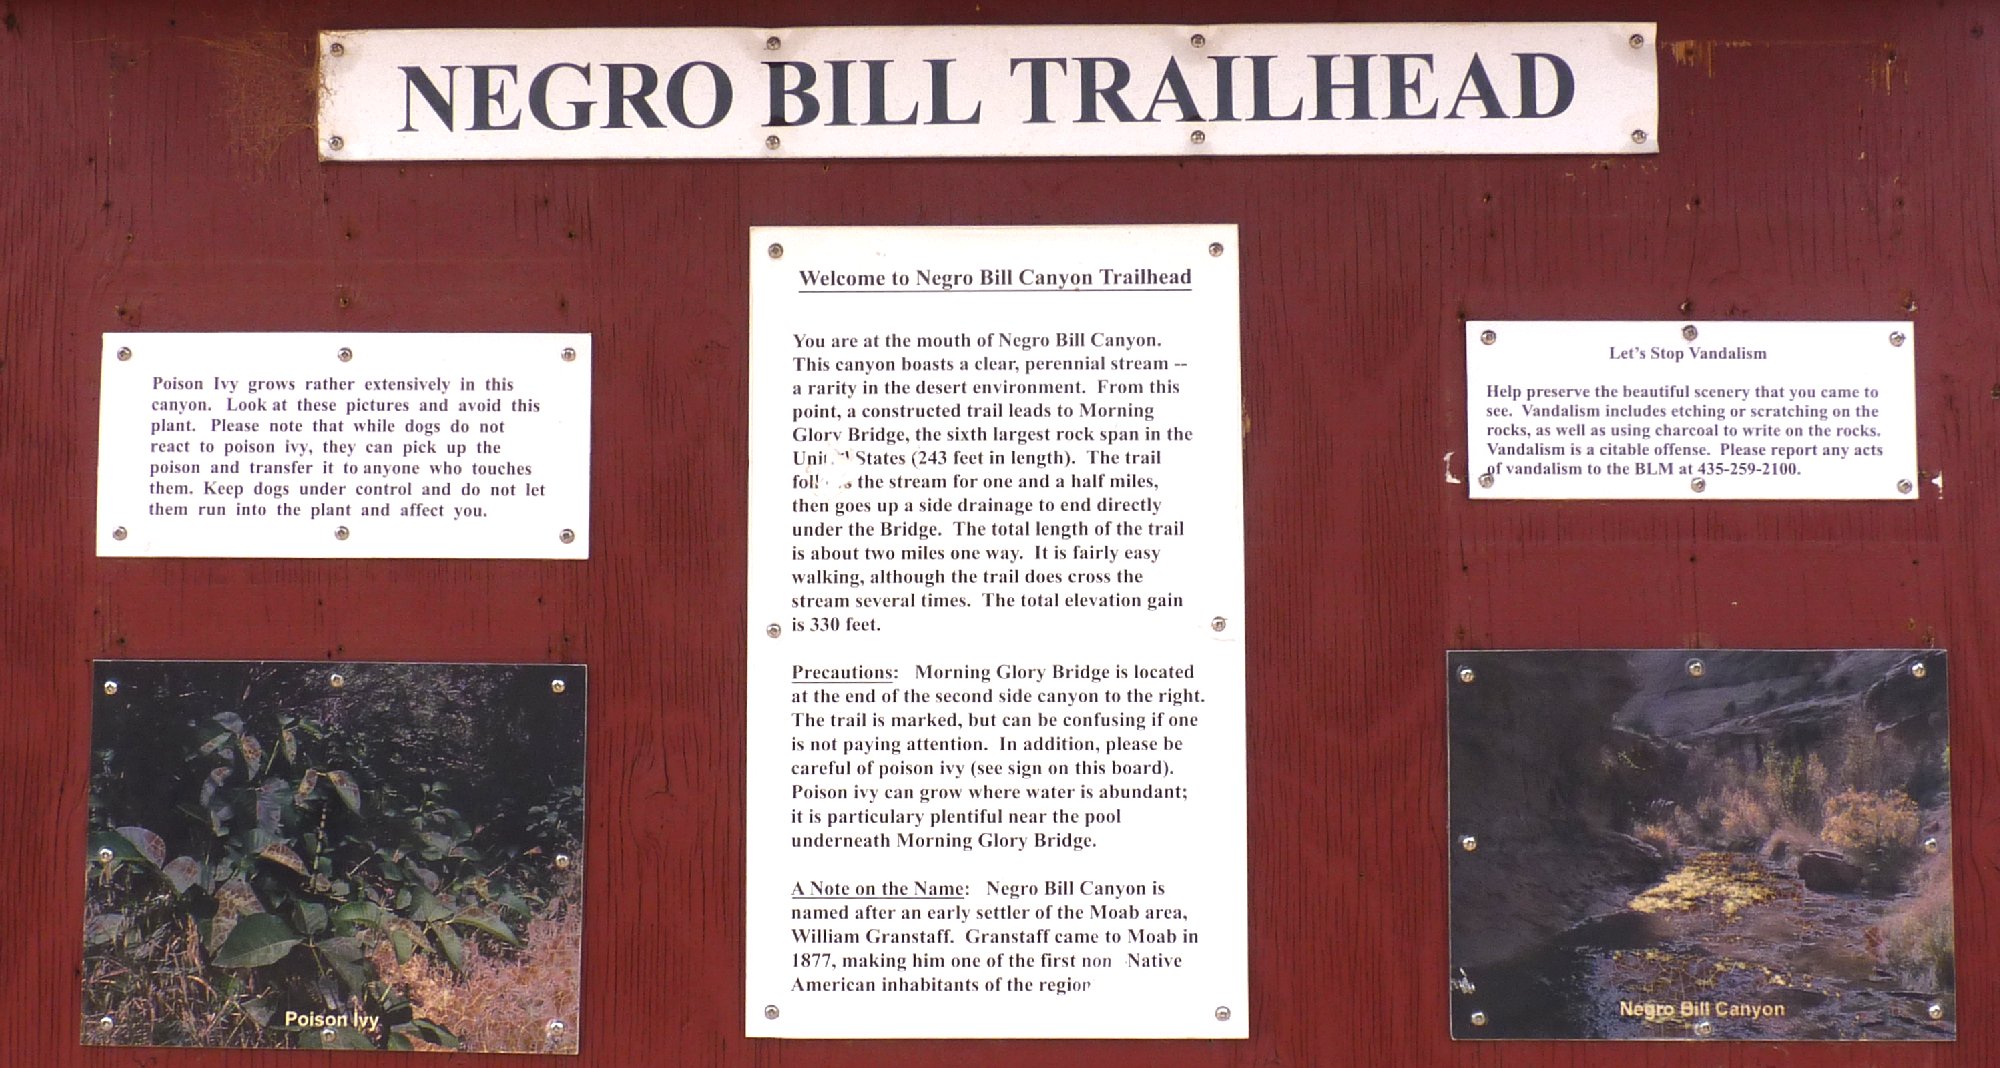 NEGRO BILL TRAILHEAD
Poison Ivy grows rather extensively in this
canyon. Look at these pictures and avoid this
plant. Please note that while dogs do not
react to poison ivy, they can pick up the
poison and transfer it to anyone who touches
them. Keep dogs under control and do not let
them run into the plant and affect you.
Poison Ivy
Welcome to Negro Bill Canyon Trailhead
You are at the mouth of Negro Bill Canyon.
This canyon boasts a clear, perennial stream --
a rarity in the desert environment. From this
point, a constructed trail leads to Morning
Glory Bridge, the sixth largest rock span in the
States (243 feet in length). The trail
the stream for one and a half miles,
then goes up a side drainage to end directly
under the Bridge. The total length of the trail
is about two miles one way. It is fairly easy
walking, although the trail does cross the
stream several times. The total elevation gain
is 330 feet.
Precautions: Morning Glory Bridge is located
at the end of the second side canyon to the right.
The trail is marked, but can be confusing if one
is not paying attention. In addition, please be
careful of poison ivy (see sign on this board).
Poison ivy can grow where water is abundant;
it is particulary plentiful near the pool
underneath Morning Glory Bridge.
A Note on the Name: Negro Bill Canyon is
named after an early settler of the Moab area,
William Granstaff. Granstaff came to Moab in
1877, making him one of the first non Native
American inhabitants of the region
Let's Stop Vandalism
Help preserve the beautiful scenery that you came to
see. Vandalism includes etching or scratching on the
rocks, as well as using charcoal to write on the rocks.
Vandalism is a citable offense. Please report any acts
of vandalism to the BLM at 435-259-2100.
Negro Bill Canyon